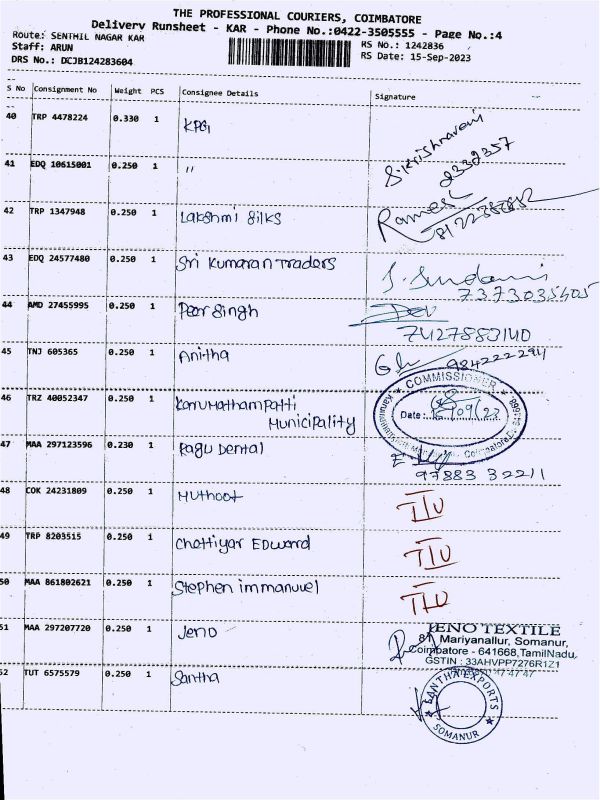 THE PROFESSIONAL COURIERS, COIMBATORE
Delivery Runsheet - KAR - Phone No.:0422-3505555 - Page No.:4
Route: SENTHIL NAGAR KAR
RS No.: 1242836
Staff: ARUN
RS Date: 15-Sep-2023
DRS No.: DCJB124283604
S No Consignment No Weight PCS Consignee Details Signature
40 TRP 4478224 0.330 1 KPG
S.Krishnaveni
41 EDQ 10615001 0.250 1 "
42 TRP 1347948 0.250 1 Lakshmi Silks
Ramesh
43 EDQ 24577480 0.250 1 Sri Kumaran Traders
7373035405
44 AMD 27455995 0.250 1 Peer Singh
7427883140
45 TNJ 605365 0.250 1 Anitha
9842222294
46 TRZ 40052347 0.250 1 Karumathampatti
Municipality
COMMISSIONER
Date:
47 MAA 297123596 0.230 1 Ragu Dental
97883 32211
48 COK 24231809 0.250 1 Muthoot
49 TRP 8203515 0.250 1 Chettiyar Edward
50 MAA 861802621 0.250 1 Stephen immanuvel
51 MAA 297207720 0.250 1 Jeno
JENO TEXTILE
Mariyanallur, Somanur,
Coimbatore - 641668,TamilNadu
GSTIN : 33AHVPP7276R1Z1
52 TUT 6575579 0.250 1 Santha
SANTHA EXPORTS
SOMANUR